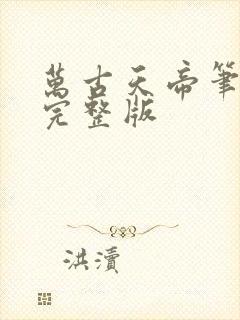 萬古天帝筆
完整版
洪瀆